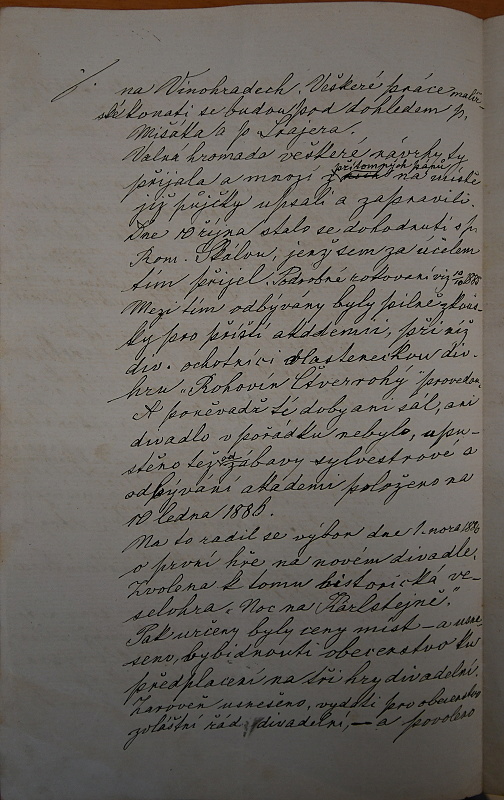 na Vinohradech. Veškeré práce malíř-
ské konati se budou pod dohledem p.
Mišáka a p. Šrajera.
Valná hromada veškeré návrhy ty
přijala a mnozí z přítomných pánů na místě
již půjčky upsali a zapravili.
Dne 10 října stalo se dohodnutí s p.
Rom. Skálou, jenž sem za účelem
tím přijel. Podrobné rokování viz 10/10 1885
Mezi tím odbývány byly pilně zkouš-
ky pro příští akademii, při níž
div. ochotníci vlasteneckou div.
hru „Rohovín Čtverrohý" provedou.
A poněvadž té doby ani sál, ani
divadlo v pořádku nebylo, upu-
stěno též od zábavy sylvestrové a
odbývání akademi položeno na
10 ledna 1886.
Na to radil se výbor dne 1. nora 1886
o první hře na novém divadle.
Zvolena k tomu historická ve-
selohra „Noc na Karlštejně."
Pak určeny byly ceny míst – a usne-
seno, vybídnouti obecenstvo ku
předplacení na tři hry divadelní.
Zároveň usneseno, vydati pro obecenstvo
zvláštní řád divadelní, – a povoleno